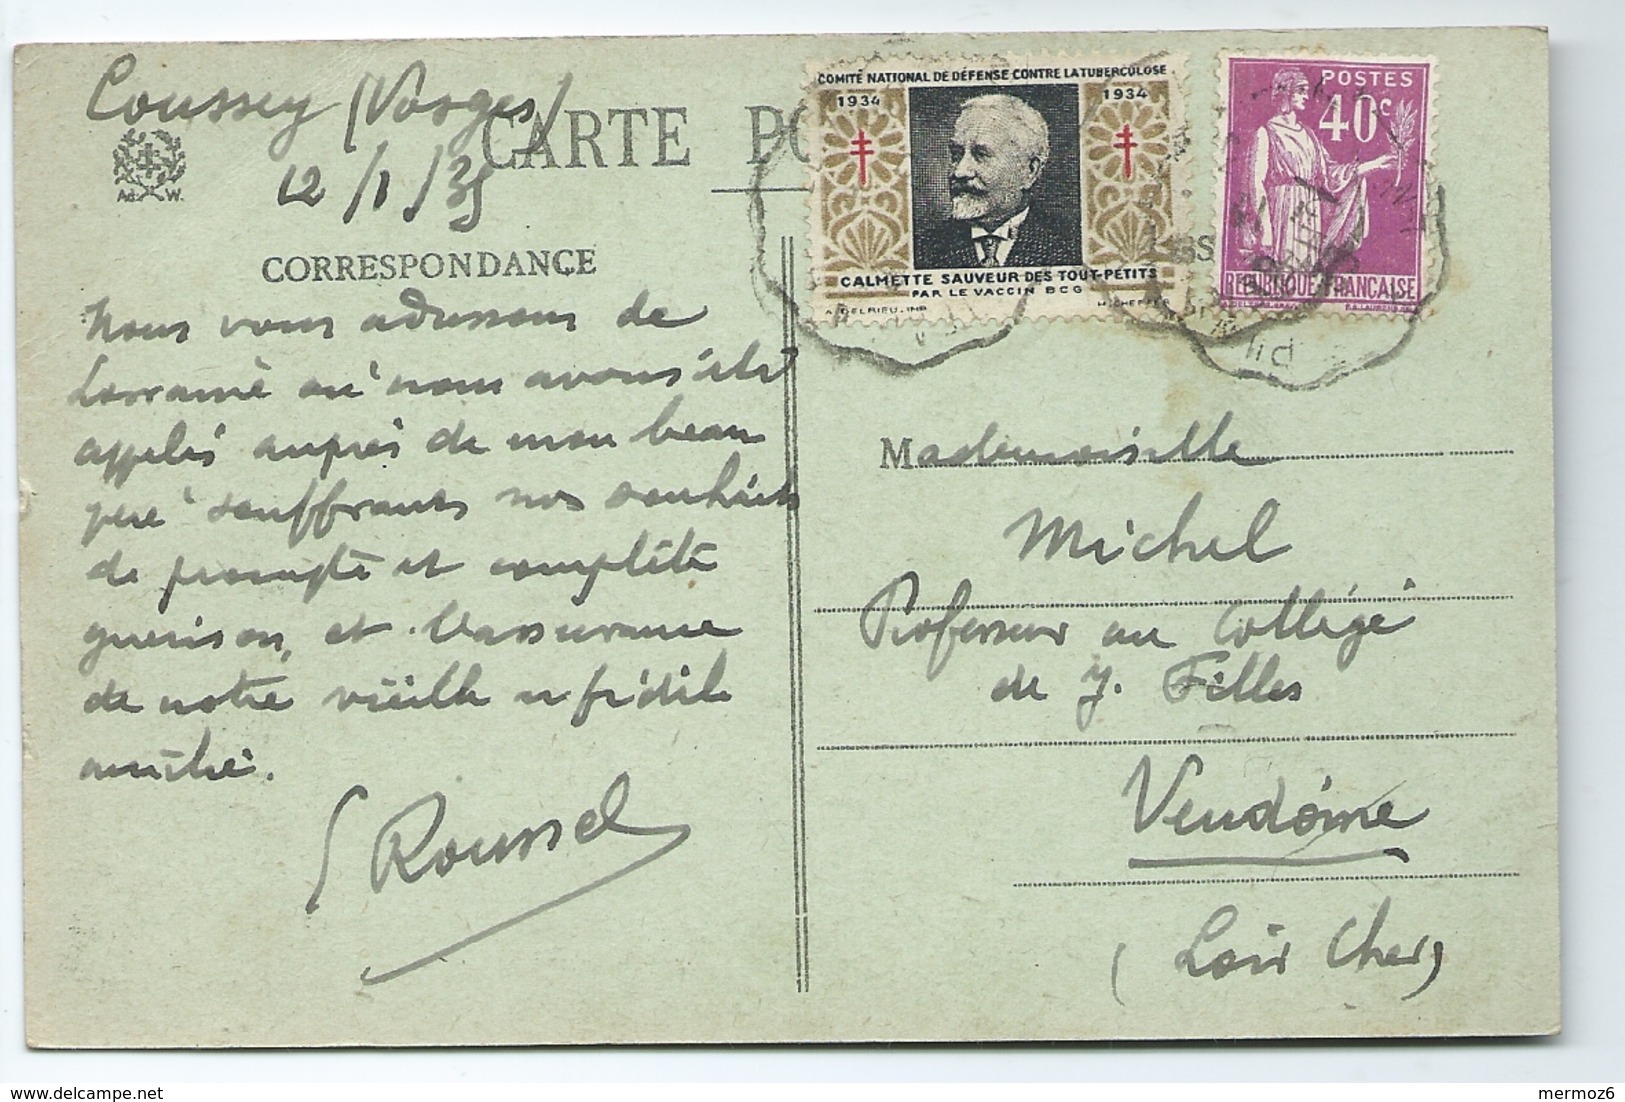 Coussey (Vosges)
12/1/35
CARTE PO
Ad. W.
CORRESPONDANCE
Nous vous adressons de
Lorraine où nous avons été
appelés auprès de mon beau
père souffrant nos souhaits
de prompte et complète
guérison, et l'assurance
de notre vieille et fidèle
amitié.
Roussel
COMITÉ NATIONAL DE DÉFENSE CONTRE LA TUBERCULOSE
1934 1934
CALMETTE SAUVEUR DES TOUT-PETITS
PAR LE VACCIN BCG
A. DELRIEU. IMP.
POSTES
40c
REPUBLIQUE FRANÇAISE
Mademoiselle
Michel
Professeur au Collège
de J. Filles
Vendôme
(Loir Cher)
delcampe.net
mermoz6